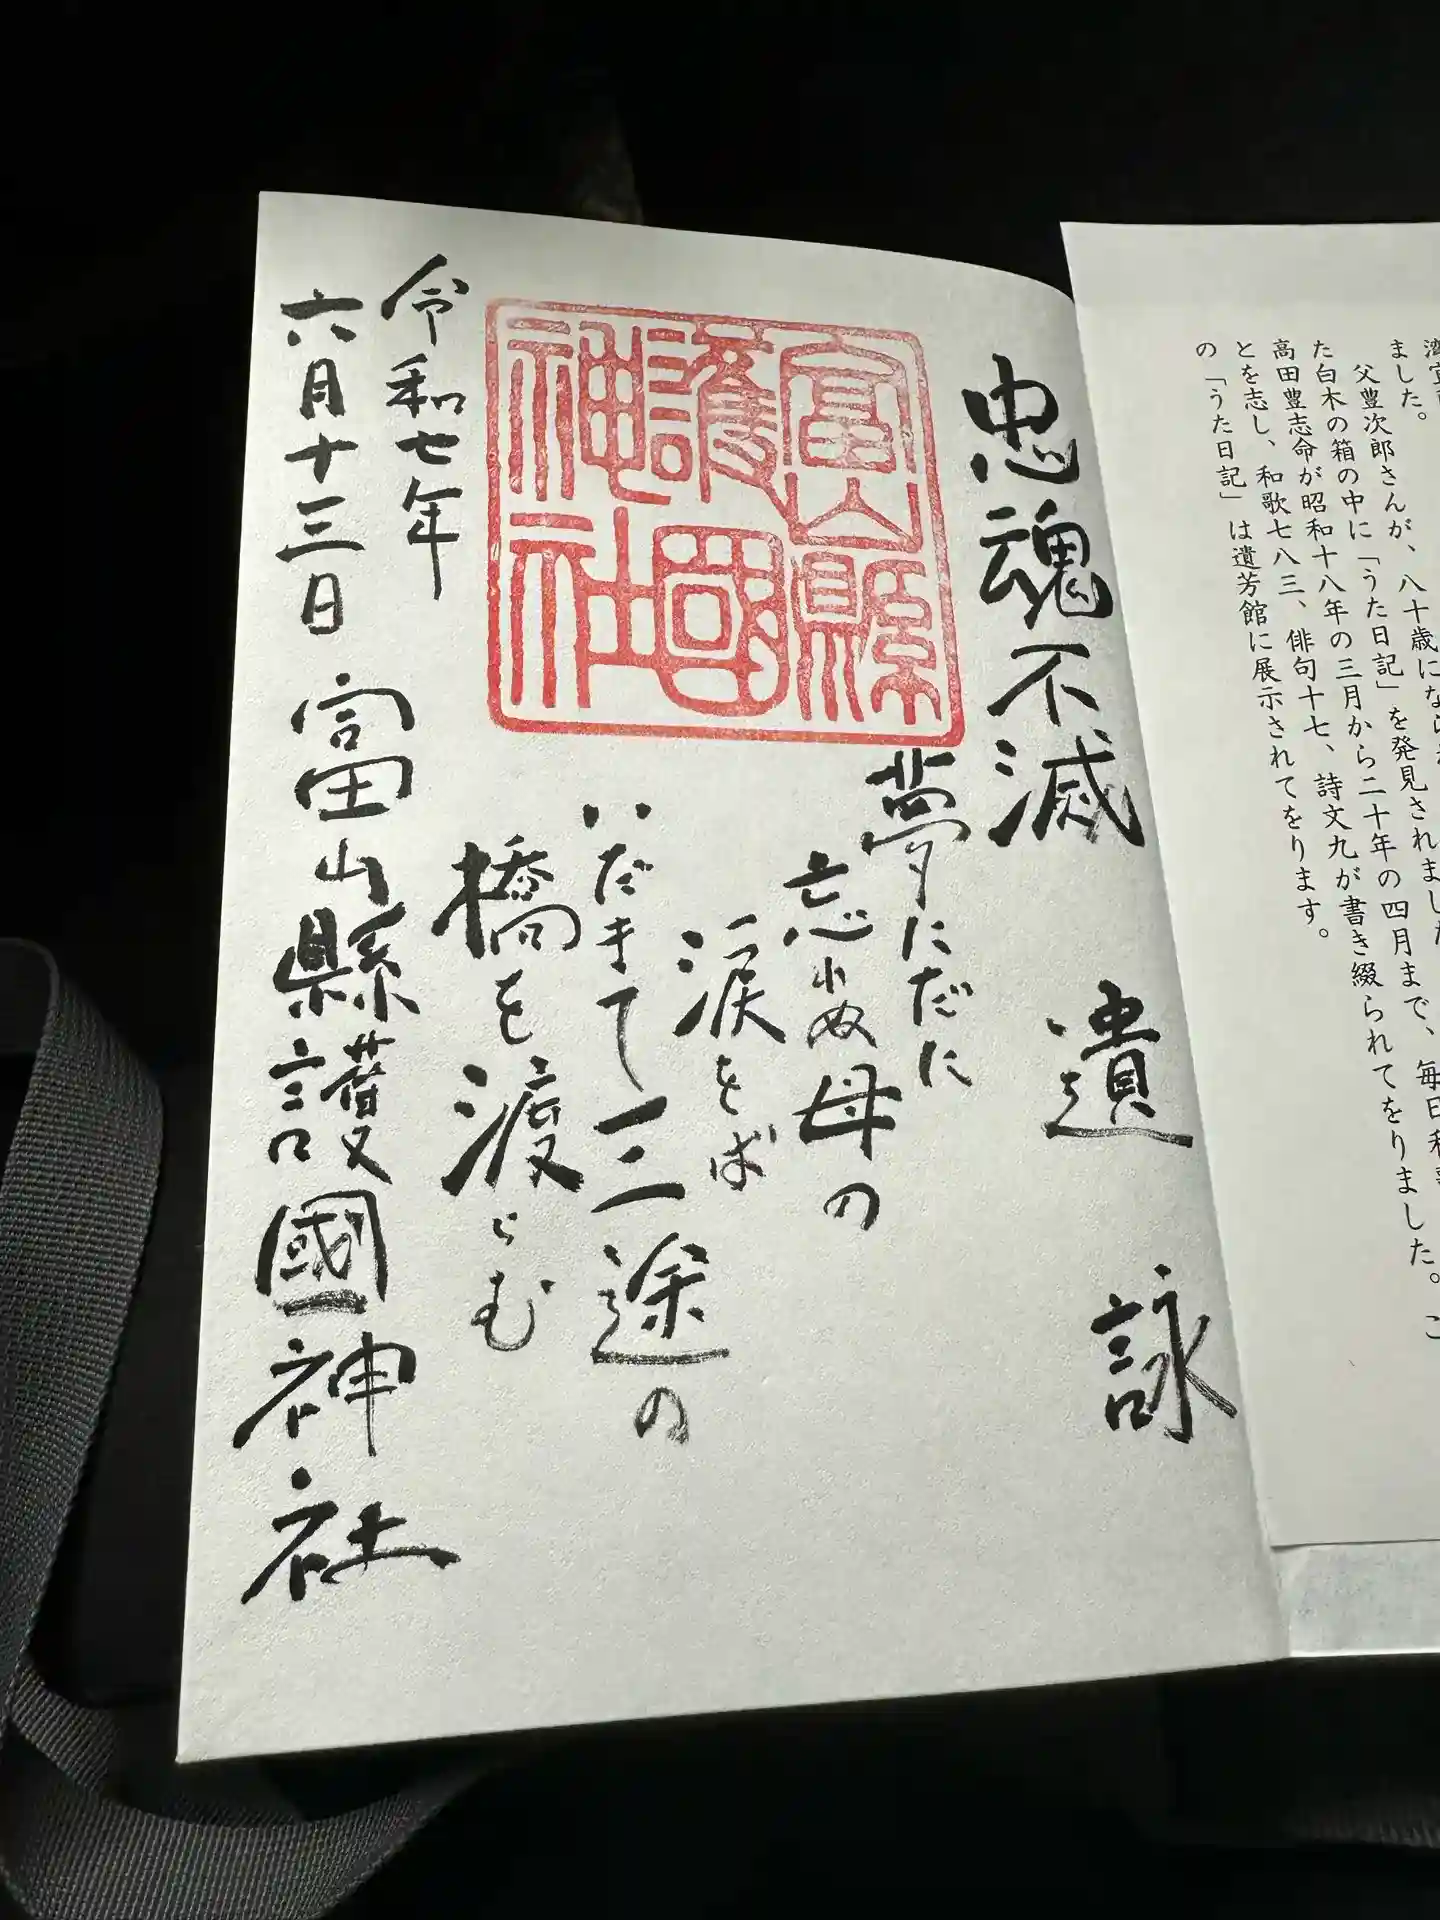 ました。
父豊次郎さんが、八十歳になられ
た白木の箱の中に「うた日記」を発見されました
高田豊志命が昭和十八年の三月から二十年の四月まで、毎日和
とを志し、和歌七八三、俳句十七、詩文九が書き綴られてをりました。こ
の「うた日記」は遺芳館に展示されてをります。
忠魂不滅 遺詠
夢にだに
忘れぬ母の
涙をば
いだきて三途の
橋を渡らむ
富山縣
護國
神社
令和七年
六月十三日 富山縣護國神社